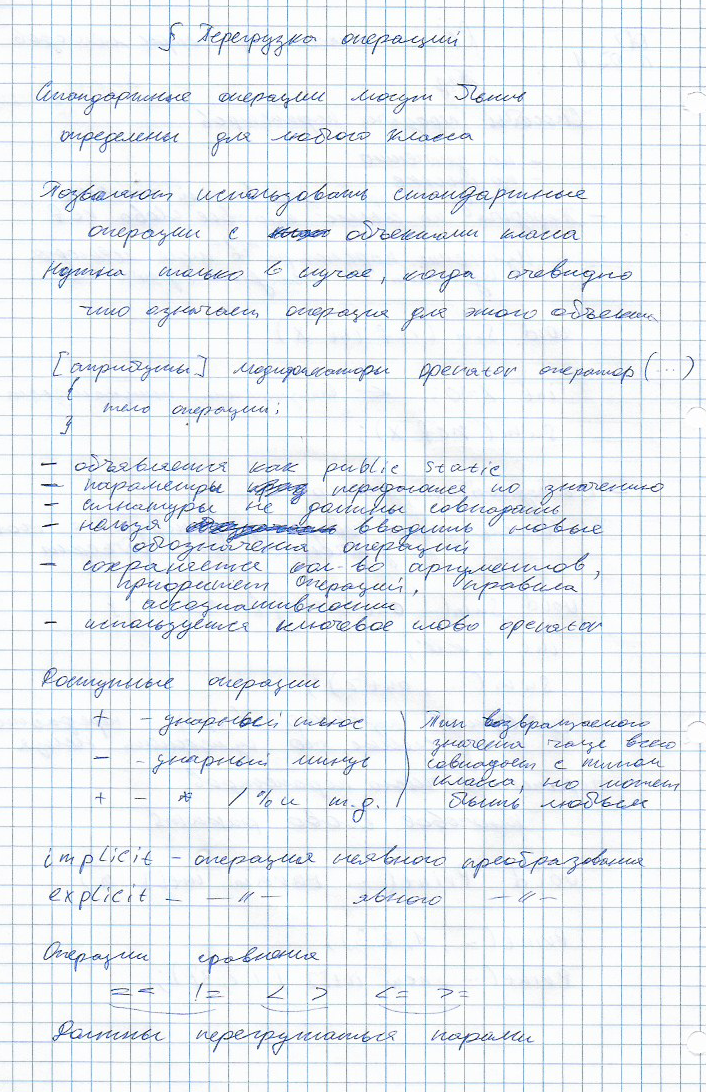 § Перегрузка операций
Стандартные операции могут быть
определены для любого класса
Позволяют использовать стандартные
операции с объектами класса
Нужна только в случае, когда очевидно
что означает операция для этого объекта
[атрибуты] модификаторы operator оператор (...)
{
тело операции;
}
- объявляется как public static
- параметры передаются по значению
- сигнатуры не должны совпадать
- нельзя вводить новые
обозначения операций
- сохраняется кол-во аргументов,
приоритет операций, правила
ассоциативности
- используется ключевое слово operator
Доступные операции
+ - унарный плюс
- - унарный минус
+ - * / % и т.д.
Тип возвращаемого
значения чаще всего
совпадает с типом
класса, но может
быть любым
implicit - операция неявного преобразования
explicit - -"- явного -"-
Операции сравнения
== != < > <= >=
Должны перегружаться парами